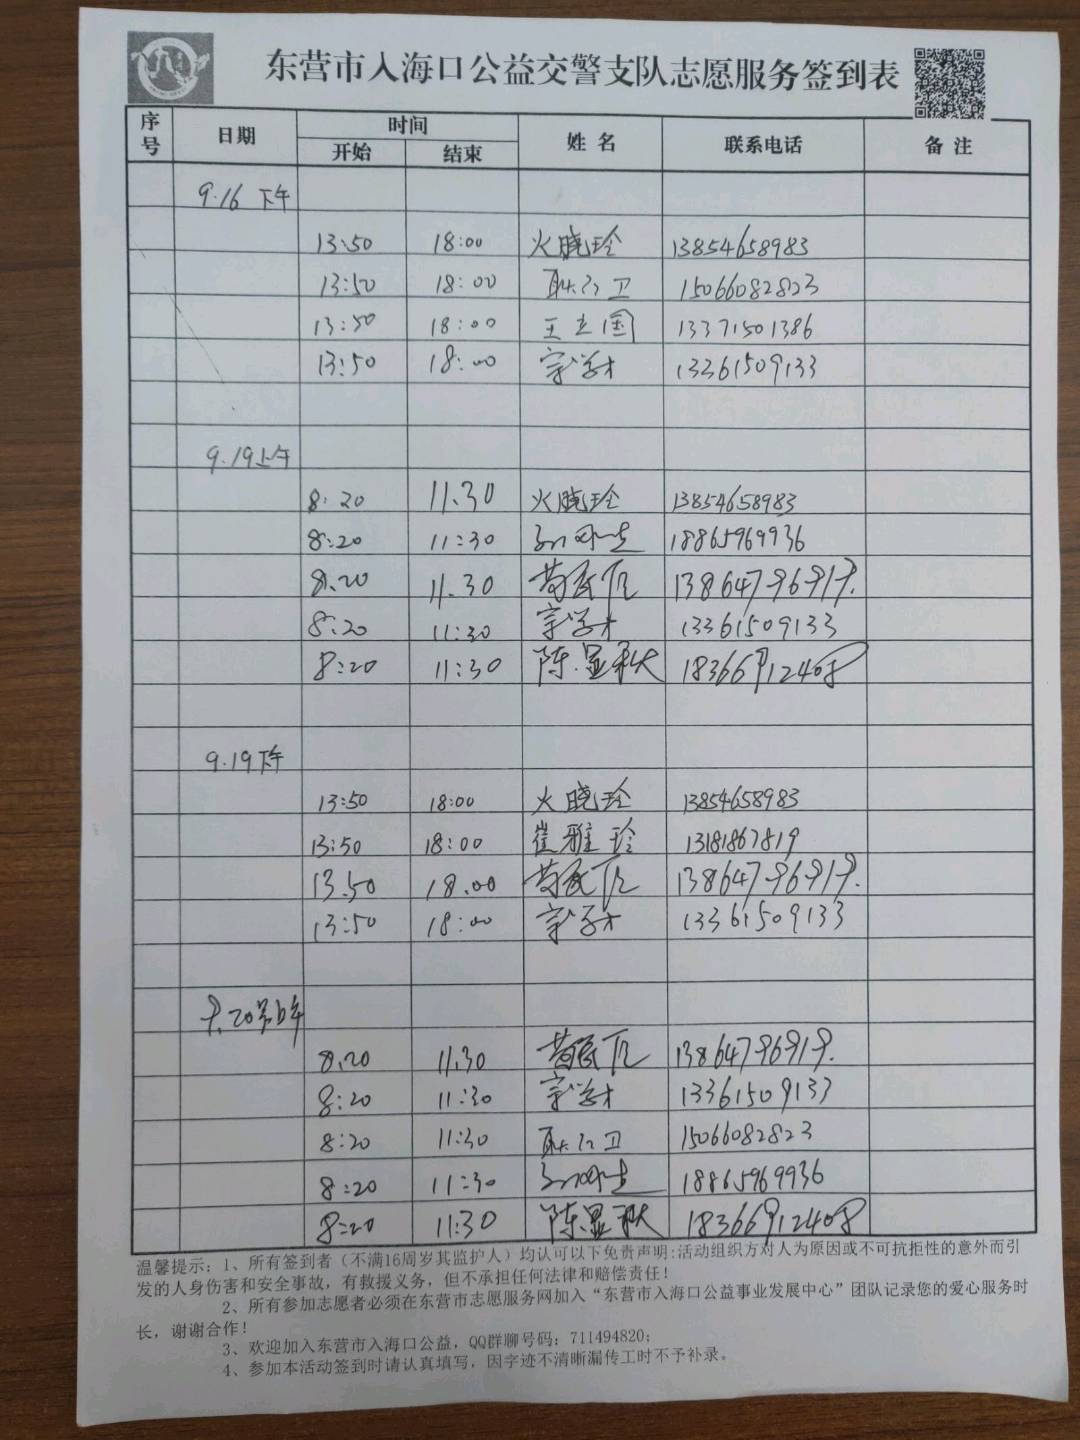 东营市入海口公益交警支队志愿服务签到表
序号 日期 时间 姓名 联系电话 备注
开始 结束
9.16 下午
13:50 18:00 火晓玲 13854658983
13:50 18:00 耿卫 15066082823
13:50 18:00 王立国 13371501386
13:50 18:00 宗学才 13361509133
9.19上午
8:20 11.30 火晓玲 13854658983
8:20 11:30 18865969936
8.20 11.30 13864796919.
8:20 11:30 宗学才 13361509133
8:20 11:30 陈显秋 18366912408
9.19下午
13:50 18:00 火晓玲 13854658983
13:50 18:00 崔雅玲 13181867819
13.50 18.00 13864796919.
13:50 18:00 宗学才 13361509133
9.20号上午
8.20 11.30 13864796919.
8:20 11:30 宗学才 13361509133
8:20 11:30 耿卫 15066082823
8:20 11:30 18865969936
8:20 11:30 陈显秋 18366912408
温馨提示:1、所有签到者(不满16周岁其监护人)均认可以下免责声明:活动组织方对人为原因或不可抗拒性的意外而引
发的人身伤害和安全事故,有救援义务,但不承担任何法律和赔偿责任!
2、所有参加志愿者必须在东营市志愿服务网加入“东营市入海口公益事业发展中心”团队记录您的爱心服务时
长,谢谢合作!
3、欢迎加入东营市入海口公益,QQ群聊号码:711494820;
4、参加本活动签到时请认真填写,因字迹不清晰漏传工时不予补录。